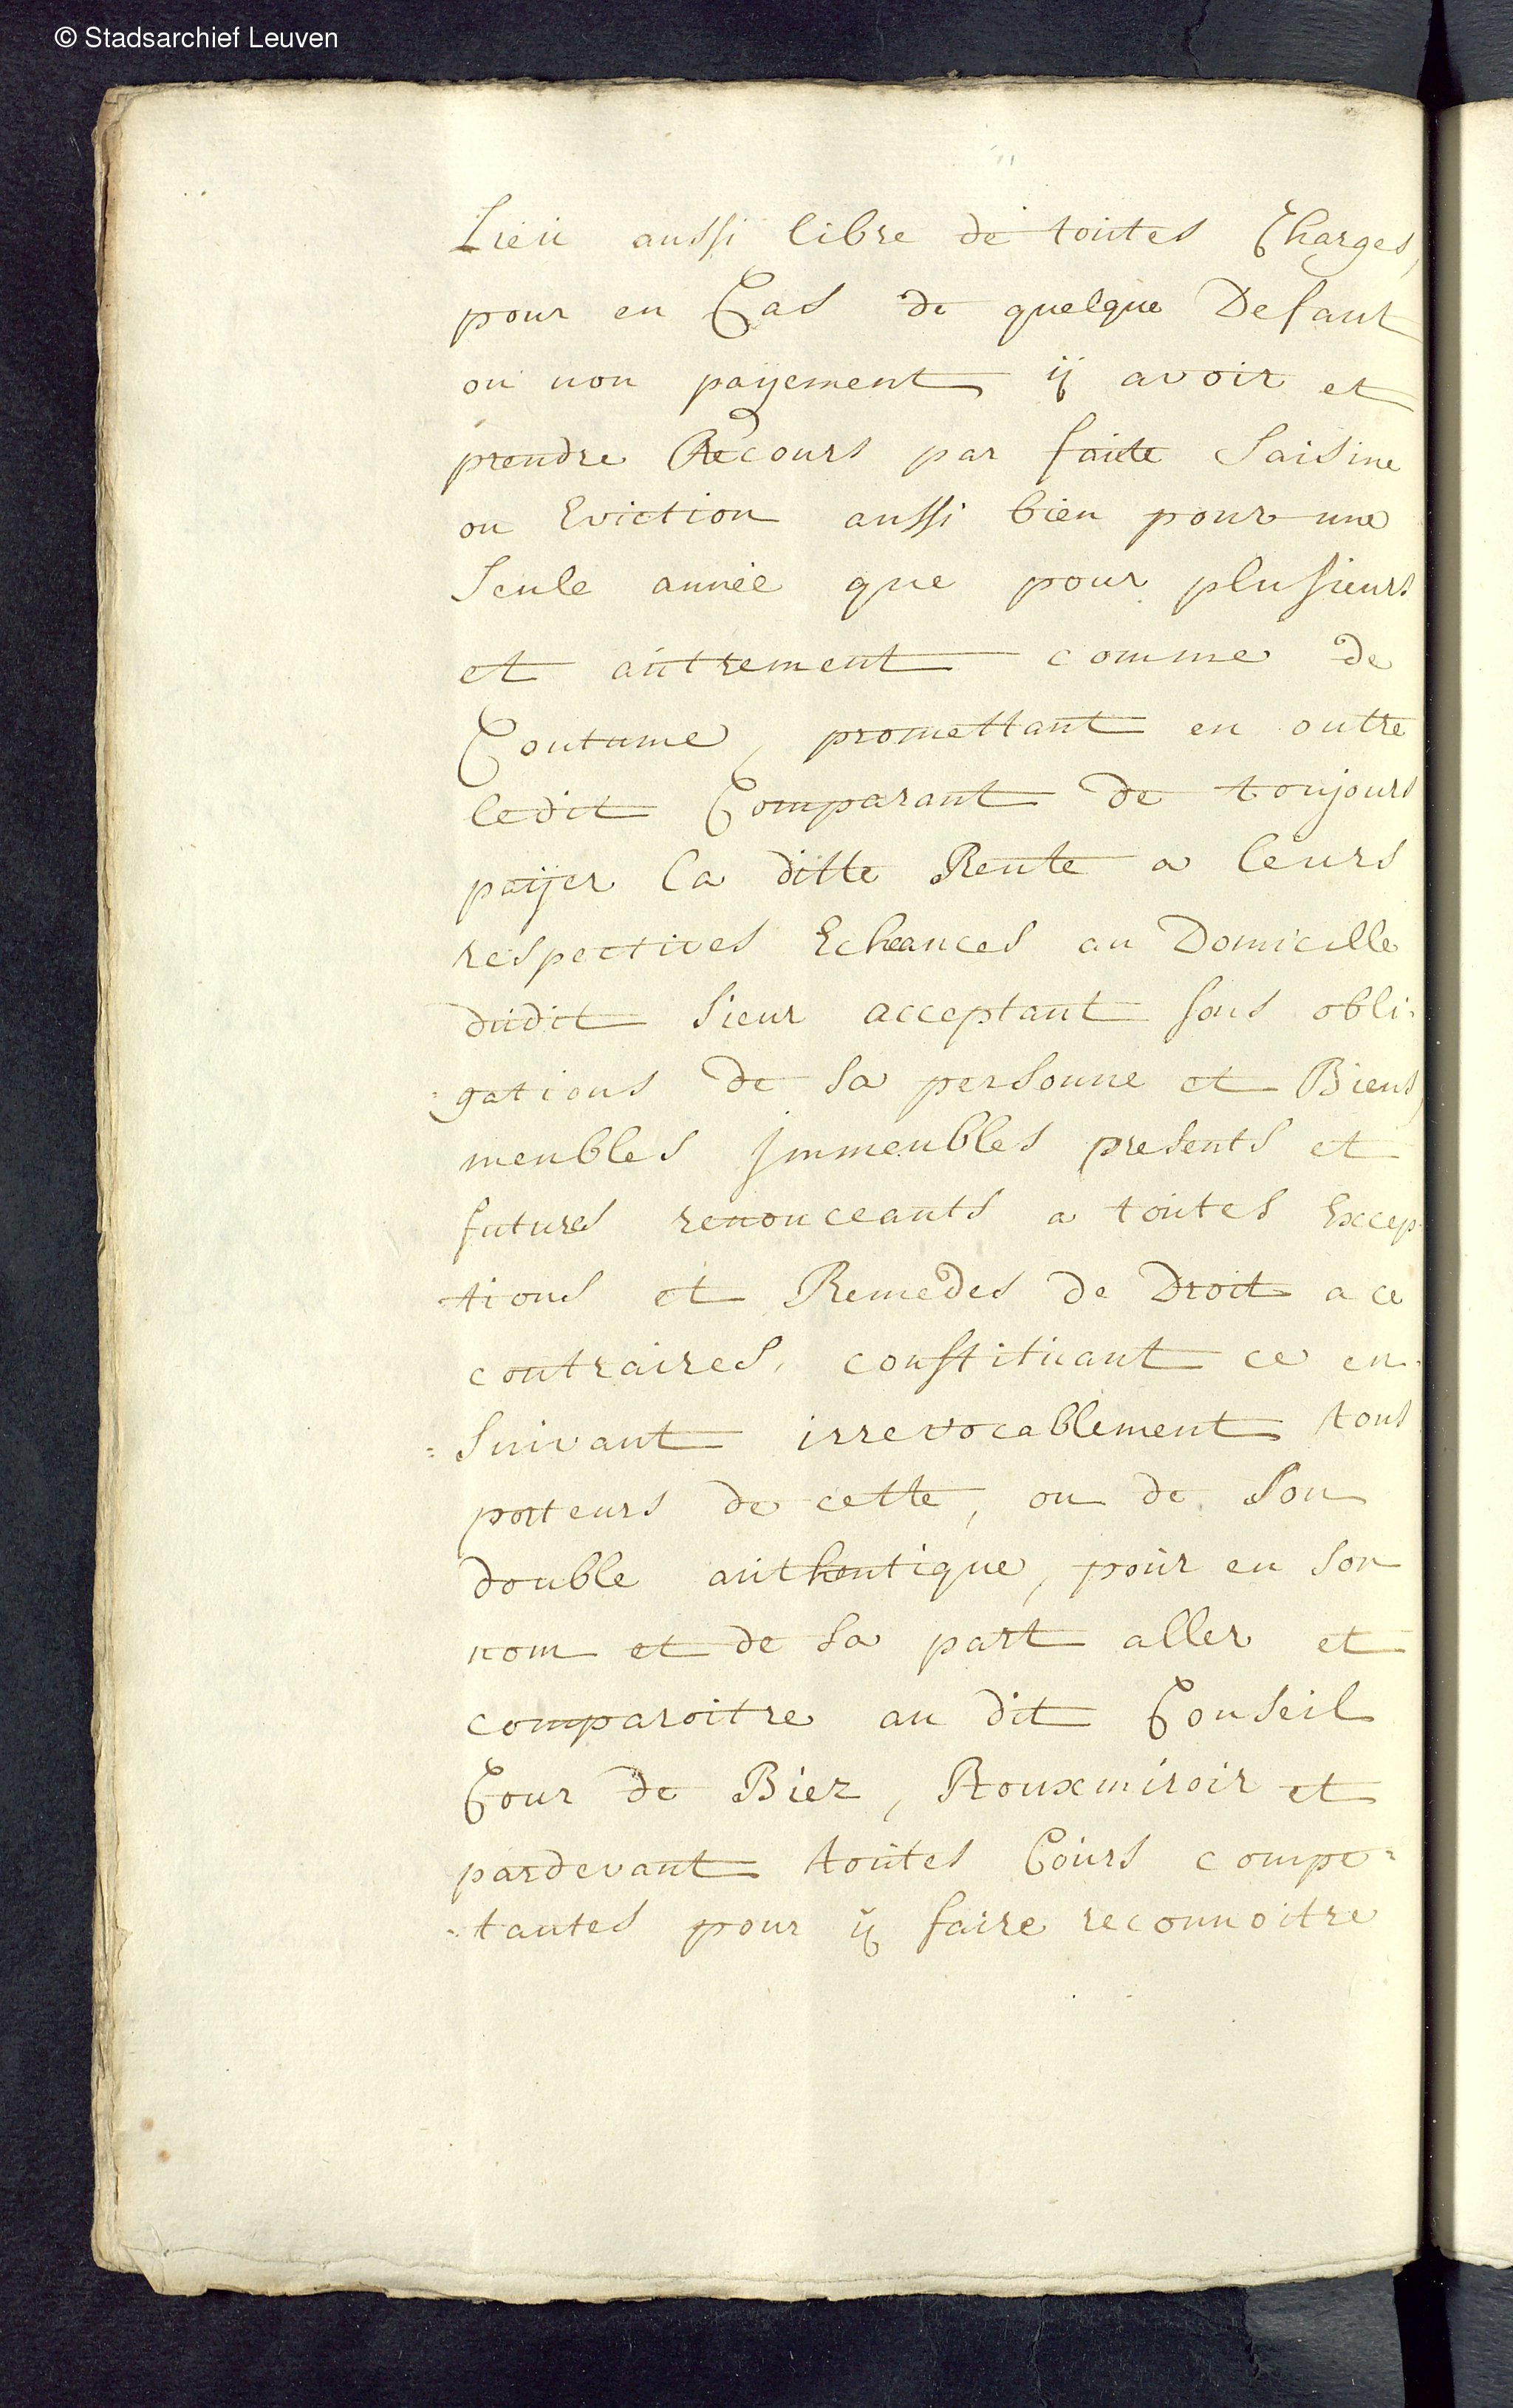 © Stadsarchief Leuven
Lieu aussi libre de toutes Charges,
pour en Cas de quelque Defaut
ou non payement ÿ avoir et
prendre Recours par faite Saisine
ou Eviction aussi bien pour une
Seule année que pour plusieurs
et autrement comme de
Coutume, promettant en outre
ledit Comparant de toujours
paÿer la ditte Rente a leurs
respectives Echeances au Domicille
dudit Sieur acceptant sous obli-
-gations de sa personne et Biens,
meubles Immeubles presents et
futures renonceants a toutes Excep-
tions et Remedes de Droit a ce
contraires, constituant ce en-
=Suivant irrevocablement tous
porteurs de cette, ou de son
double authentique, pour en son
nom et de sa part aller et
comparoitre au dit Conseil
Cour de Biez, Rouxmiroir et
pardevant toutes Cours compe=
-tantes pour ÿ faire reconnoitre